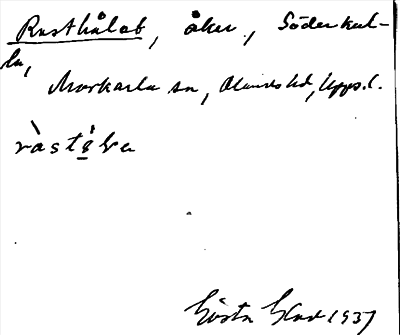 Rusthålet, åker, Söderkul-
la,
Morkarla sn, Olands hd, Upps.l.

Gösta Blad 1937